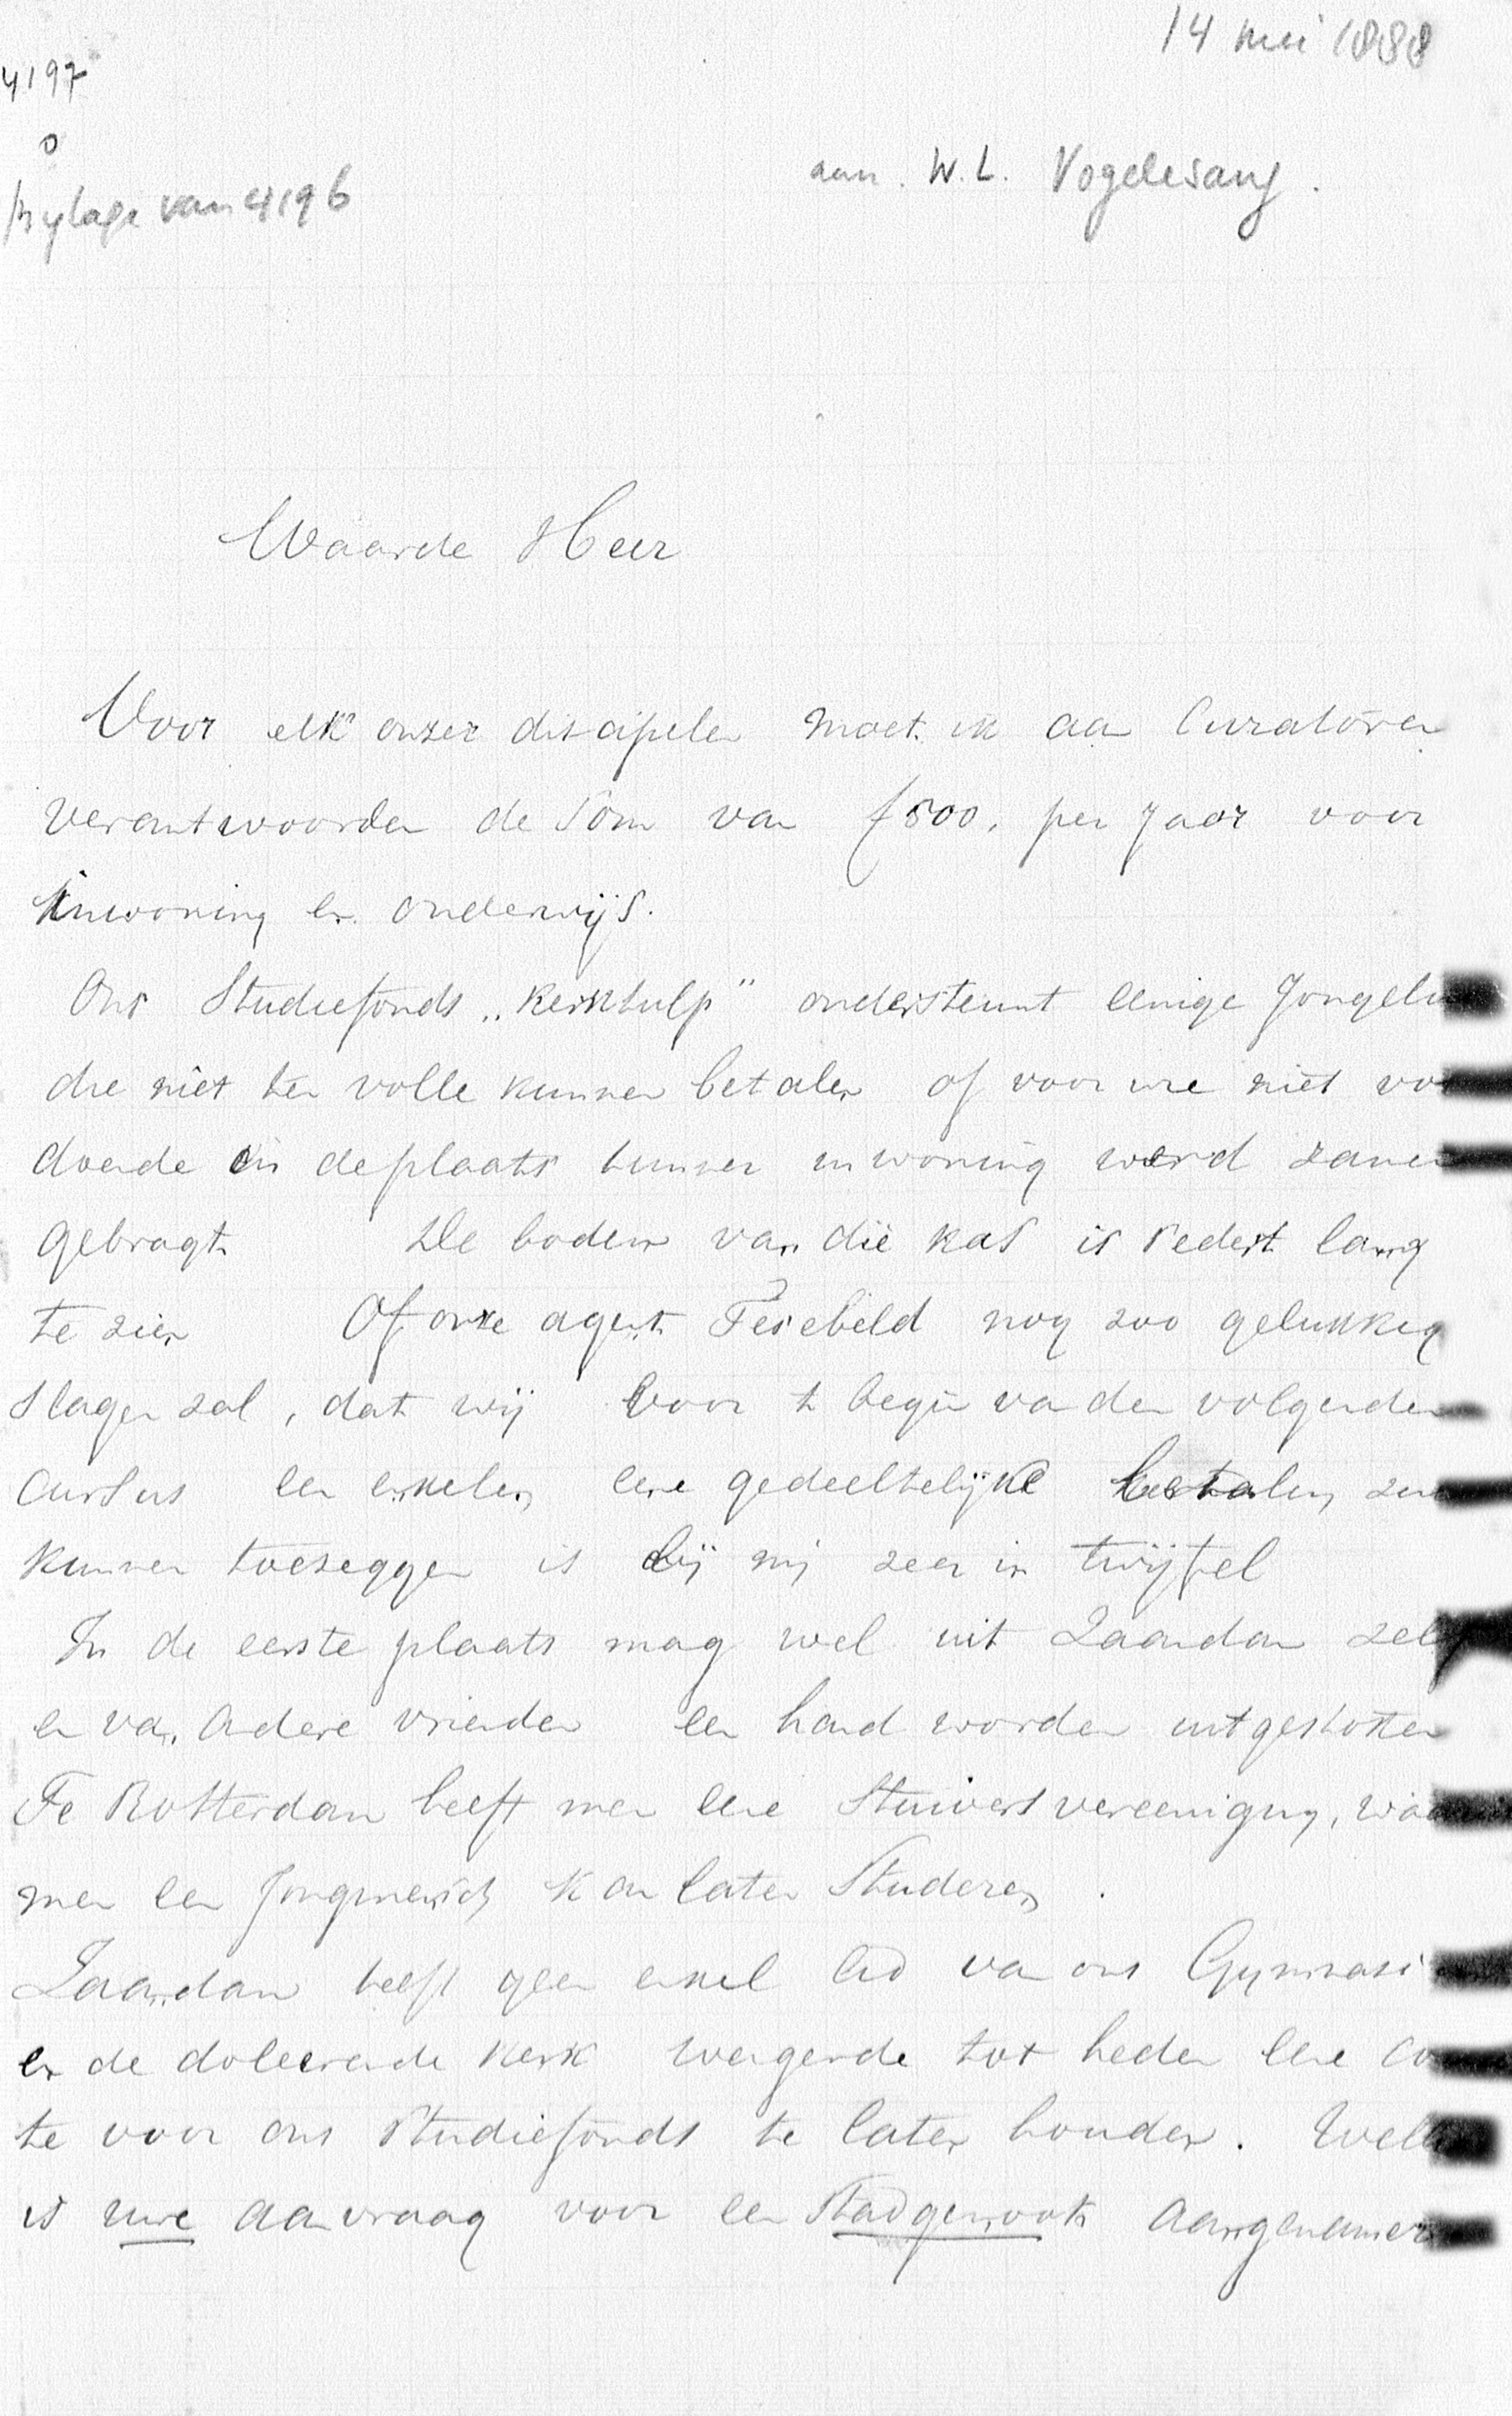 14 mei 1888
4197
0
Bylage van 4196
aan. W. L. Vogelesang.
Waarde Heer
Voor elk onzer discipelen moet ik aan Curatoren
verantwoorden de Som van f500, per Jaar voor
inwoning en onderwijs.
Ons Studiefonds „Kerkhulp" ondersteunt eenige Jongelie
die niet ten volle kunnen betalen of voor wie niet vol
doende in de plaats hunner inwoning werd zamen
gebragt De bodem van die kas is sedert lang
te zien Of onze agent Teisebeld nog zoo gelukkig
slagen zal, dat wij voor 't begin van den volgenden
Cursus een enkelen eene gedeeltelijke betaling
kunnen toezeggen is bij mij zeer in twijfel
In de eerste plaats mag wel uit Zaandam zelf
en van andere vrienden een hand worden uitgestoken
Te Rotterdam heeft men eene Stuiversvereeniging,
men een Jongmensch kan laten Studeren.
Zaandam heeft geen enkel lid van ons Gymnasi
en de doleerende Kerk weigerde tot heden eene co
te voor ons Studiefonds te laten houden. Welk
is uwe aanvraag voor een Stadgenoot aangenamer